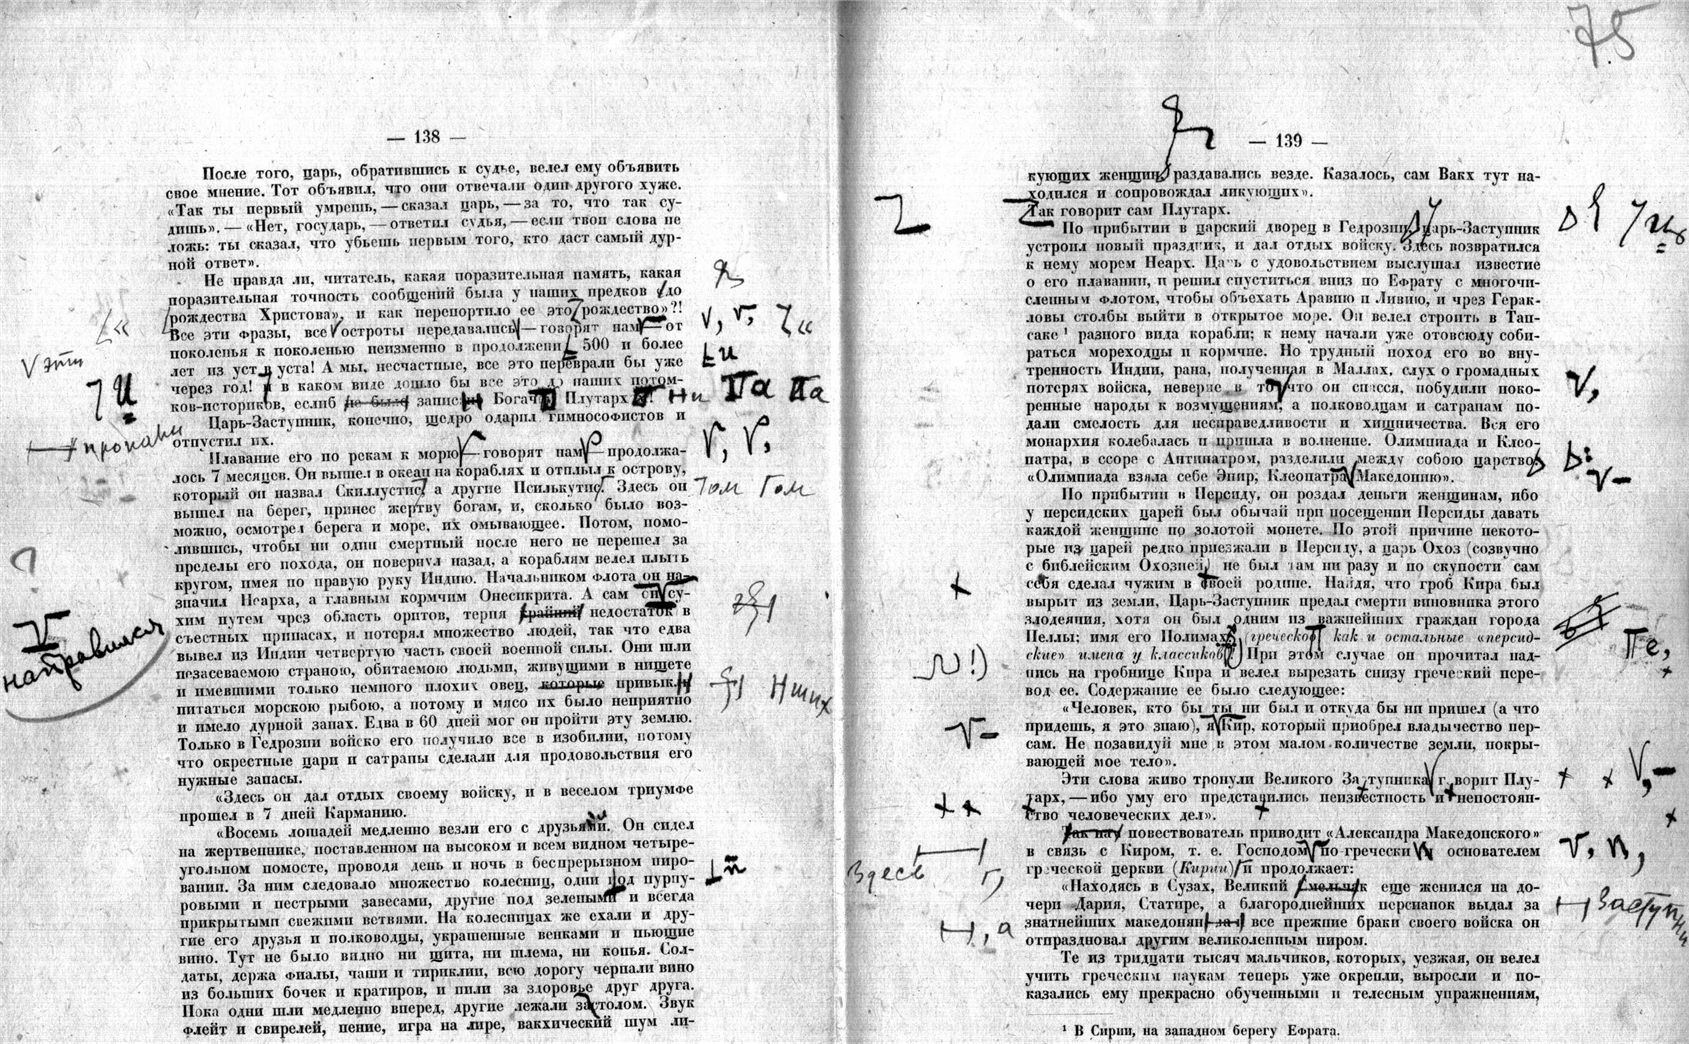 75
— 138 —
После того, царь, обратившись к судье, велел ему объявить
свое мнение. Тот объявил, что они отвечали один другого хуже.
«Так ты первый умрешь, — сказал царь, — за то, что так су-
дишь». — «Нет, государь, — ответил судья, — если твои слова не
ложь: ты сказал, что убьешь первым того, кто даст самый дур-
ной ответ».
Не правда ли, читатель, какая поразительная память, какая
поразительная точность сообщений была у наших предков «до
рождества Христова», и как перепортило ее это рождество»?!
Все эти фразы, все остроты передавались — говорят нам — от
поколенья к поколенью неизменно в продолжени 500 и более
V эти
лет из уст в уста! А мы, несчастные, все это переврали бы уже
через год! И в каком виде дошло бы все это до наших потом-
ков-историков, еслиб не было записи Богач Плутарх
ни Па Па
Царь-Заступник, конечно, щедро одарил гимнософистов и
отпустил их.
Плавание его по рекам к морю — говорят нам — продолжа-
лось 7 месяцев. Он вышел в океан на кораблях и отплыл к острову,
который он назвал Скиллустис, а другие Псилькутис. Здесь он
Том Гом
вышел на берег, принес жертву богам, и, сколько было воз-
можно, осмотрел берега и море, их омывающее. Потом, помо-
лившись, чтобы ни один смертный после него не перешел за
пределы его похода, он повернул назад, а кораблям велел плыть
кругом, имея по правую руку Индию. Начальником флота он на-
значил Неарха, а главным кормчим Онесикрита. А сам он су-
хим путем чрез область оритов, терпя крайний недостаток в
направился
съестных припасах, и потерял множество людей, так что едва
вывел из Индии четвертую часть своей военной силы. Они шли
незасеваемою страною, обитаемою людьми, живущими в нищете
и имевшими только немного плохих овец, которые привыкли
питаться морскою рыбою, а потому и мясо их было неприятно
и имело дурной запах. Едва в 60 дней мог он пройти эту землю.
Только в Гедрозии войско его получило все в изобилии, потому
что окрестные цари и сатрапы сделали для продовольствия его
нужные запасы.
«Здесь он дал отдых своему войску, и в веселом триумфе
прошел в 7 дней Карманию.
«Восемь лошадей медленно везли его с друзьями. Он сидел
на жертвеннике, поставленном на высоком и всем видном четыре-
угольном помосте, проводя день и ночь в беспрерывном пиро-
вании. За ним следовало множество колесниц, одни под пурпу-
ровыми и пестрыми завесами, другие под зелеными и всегда
прикрытыми свежими ветвями. На колесницах же ехали и дру-
гие его друзья и полководцы, украшенные венками и пьющие
вино. Тут не было видно ни щита, ни шлема, ни копья. Сол-
даты, держа фиалы, чаши и тириклии, всю дорогу черпали вино
из больших бочек и кратиров, и пили за здоровье друг друга.
Пока одни шли медленно вперед, другие лежали за столом. Звук
флейт и свирелей, пение, игра на лире, вакхический шум ли-
— 139 —
кующих женщин, раздавались везде. Казалось, сам Вакх тут на-
ходился и сопровождал ликующих».
Так говорит сам Плутарх.
По прибытии в царский дворец в Гедрозии, Царь-Заступник
устроил новый праздник, и дал отдых войску. Здесь возвратился
к нему морем Неарх. Царь с удовольствием выслушал известие
о его плавании, и решил спуститься вниз по Ефрату с многочи-
сленным флотом, чтобы объехать Аравию и Ливию, и чрез Герак-
ловы столбы выйти в открытое море. Он велел строить в Тап-
саке ¹ разного вида корабли; к нему начали уже отовсюду соби-
раться мореходцы и кормчие. Но трудный поход его во вну-
тренность Индии, рана, полученная в Маллах, слух о громадных
потерях войска, неверие в то что он спасся, побудили поко-
ренные народы к возмущениям, а полководцам и сатрапам по-
дали смелость для несправедливости и хищничества. Вся его
монархия колебалась и пришла в волнение. Олимпиада и Клео-
патра, в ссоре с Антипатром, разделили между собою царство
«Олимпиада взяла себе Эпир, Клеопатра Македонию».
По прибытии в Персиду, он роздал деньги женщинам, ибо
у персидских царей был обычай при посещении Персиды давать
каждой женщине по золотой монете. По этой причине некото-
рые из царей редко приезжали в Персиду, а царь Охоз (созвучно
с библейским Охозией) не был там ни разу и по скупости сам
себя сделал чужим в своей родине. Найдя, что гроб Кира был
вырыт из земли, Царь-Заступник предал смерти виновника этого
злодеяния, хотя он был одним из важнейших граждан города
Пеллы; имя его Полимах (греческое как и остальные «персид-
ские» имена у классиков). При этом случае он прочитал над-
пись на гробнице Кира и велел вырезать снизу греческий пере-
вод ее. Содержание ее было следующее:
«Человек, кто бы ты ни был и откуда бы ни пришел (а что
придешь, я это знаю), я Кир, который приобрел владычество пер-
сам. Не позавидуй мне в этом малом количестве земли, покры-
вающей мое тело».
Эти слова живо тронули Великого Заступника говорит Плу-
тарх, — ибо уму его представились неизвестность и непостоян-
ство человеческих дел».
Так наш повествователь приводит «Александра Македонского»
в связь с Киром, т. е. Господом по-гречески и основателем
греческой церкви (Кирии) и продолжает:
Здесь
«Находясь в Сузах, Великий Смельчак еще женился на до-
Заступни
чери Дария, Статире, а благороднейших персианок выдал за
знатнейших македонян за все прежние браки своего войска он
отпраздновал другим великолепным пиром.
Те из тридцати тысяч мальчиков, которых, уезжая, он велел
учить греческим наукам теперь уже окрепли, выросли и по-
казались ему прекрасно обученными и телесным упражнениям,
¹ В Сирии, на западном берегу Ефрата.